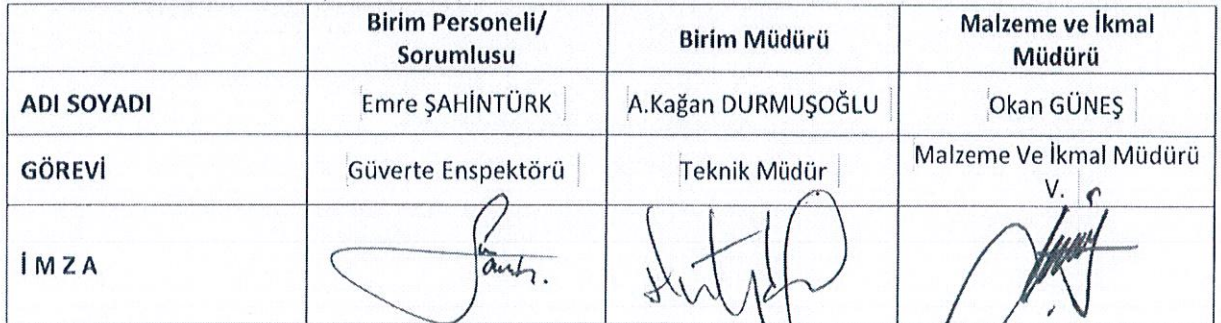 Birim Personeli/
Sorumlusu
Birim Müdürü
Malzeme ve İkmal
Müdürü
ADI SOYADI
Emre ŞAHİNTÜRK
A.Kağan DURMUŞOĞLU
Okan GÜNEŞ
GÖREVİ
Güverte Enspektörü
Teknik Müdür
Malzeme Ve İkmal Müdürü
V.
İ M Z A